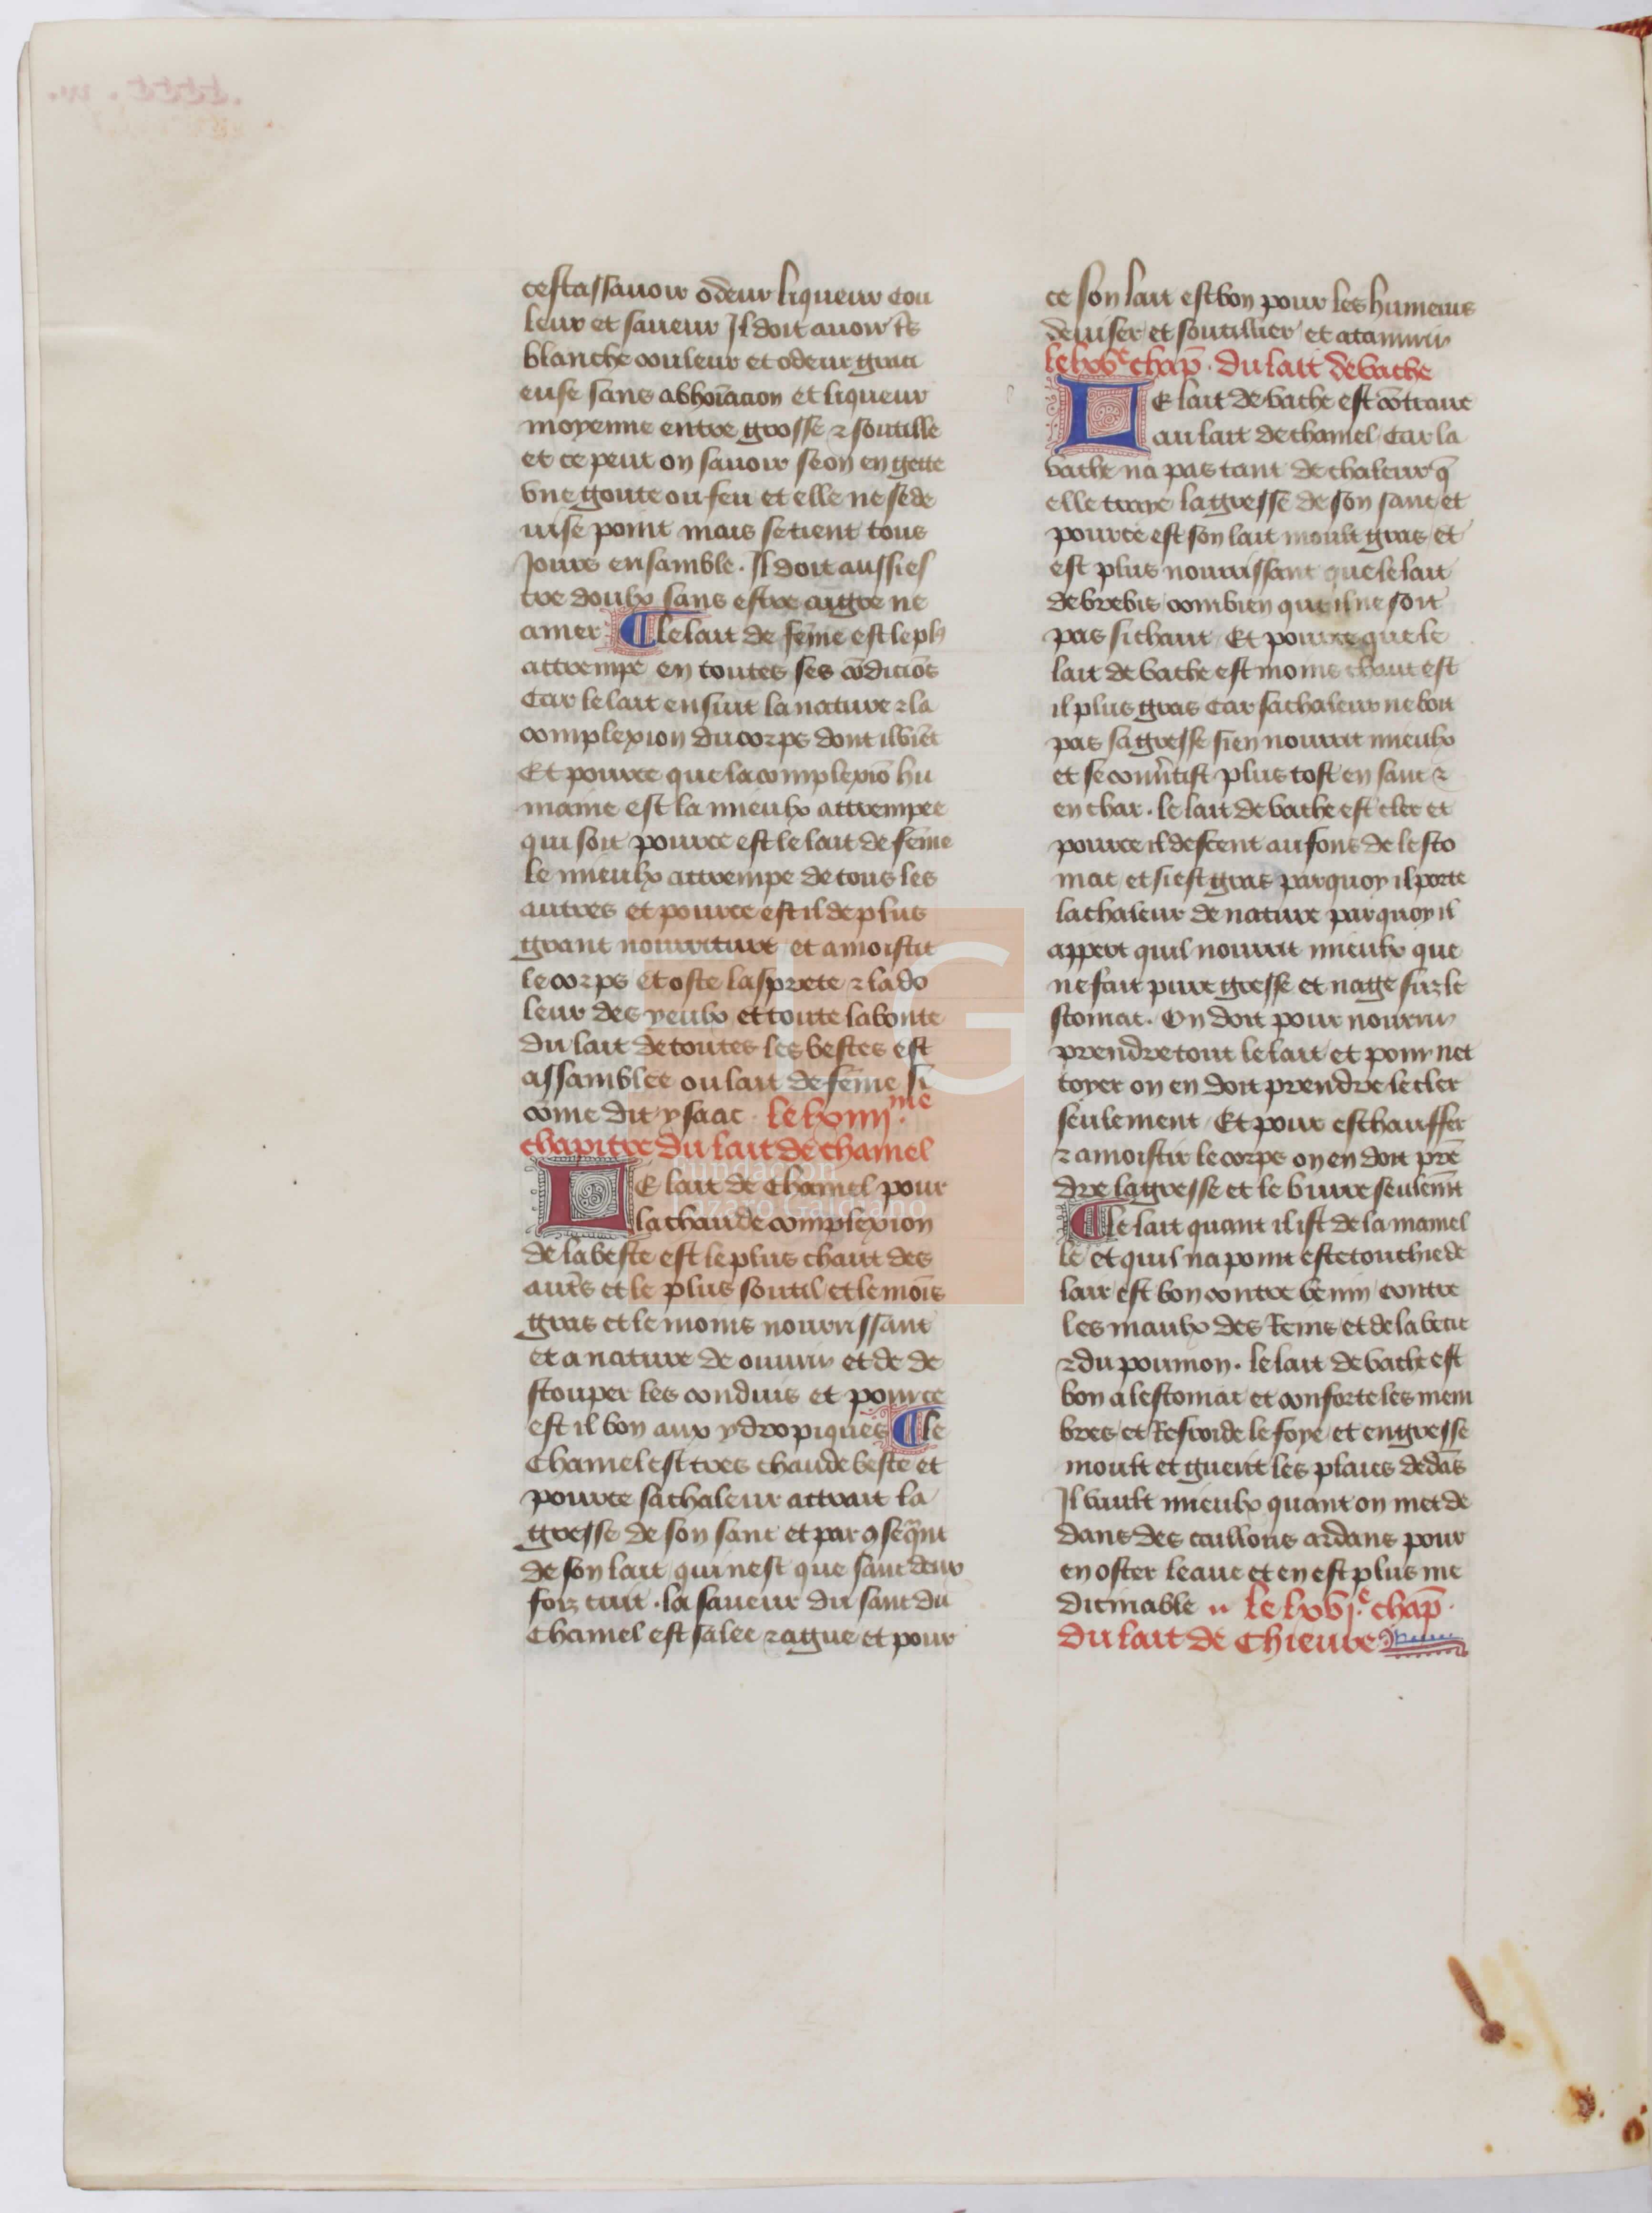 cestassauoir odeur liqueur cou
leur et saueur Il doit auoir t̃s
blanche couleur et odeur graci
euse sans abhoĩacion et liqueur
moyenne entre grosse ⁊ soutille
et ce peut on sauoir se on en gette
vne goute ou feu et elle ne se de
uise point mais se tient tous
Jours ensamble . Il doit aussi es
tre doulx sans estre aigre ne
amer ¶ le lait de fẽme est le pl9
attrempe en toutes ses cõdiciõs
Car le lait ensuit la nature ⁊ la
complexion du corps dont il viẽt
Et pource que la complexiõ hu
maine est la mieulx attrempee
qui soit pource est le lait de fẽme
le mieulx attrempe de tous les
autres et pource est il de plus
grant nourriture et amoistit
le corps et oste lasprete ⁊ la do
leur des yeulx et toute la bonte
du lait de toutes les bestes est
assamblee ou lait de fẽme si
cõme dit ysaac . le lxiiii.me
chapitre du lait de chamel
LE lait de Chamel pour
la chaude complexion
de la beste est le plus chaut des
aut̃s et le plus soutil et le mois
gras et le moins nourrissant
et a nature de ouurir et de de
stouper les conduis et pource
est il bon aux ydropiques ¶ le
Chamel est tres chaude beste et
pource sa chaleur attrait la
gresse de son sanc et par 9seq̃nt
de son lait qui nest que sanc deux
fois cuit . la saueur du sanc du
Chamel est salee ⁊ ague et pour
ce son lait est bon pour les humeurs
deuiser et soutillier et atanurir
le lxv.e chap̃ . du lait de vache
LE lait de vache est cõtraire
au lait de chamel Car la
vache na pas tant de chaleur q̃
elle traye la gresse de son sanc et
pource est son lait moult gras et
est plus nourrissant que le lait
de brebis combien que il ne soit
pas si chaut Et pource que le
lait de vache est moins chaut est
il plus gras Car sa chaleur ne boit
pas sa gresse si en nourrit mieulx
et se conũtist plus tost en sanc ⁊
en char . le lait de vache est cler et
pource il descent au fons de lesto
mac et si est gras par quoy il porte
la chaleur de nature par quoy il
appert quil nourrit mieulx que
ne fait pure gresse et nage sur le
stomac . On doit pour nourrir
prendre tout le lait et pour net
toyer on en doit prendre le cler
seulement Et pour eschauffer
⁊ amoistir le corps on en doit prẽ
dre la gresse et le burre seulemt
¶ le lait quant il ist de la mamel
le et quil na point este touchie de
lair est bon contre venin contre
les maulx des Reins et de la vecie
⁊ du poumon . le lait de vache est
bon a lestomac et conforte les mem
bres et Refroide le foye et engresse
moult et guerit les plaies dedãs
Il vault mieulx quant on met de
dans des caillous ardans pour
en oster leaue et en est plus me
dicinable ıı le lxvj.e chap̃ .
du lait de Chieure